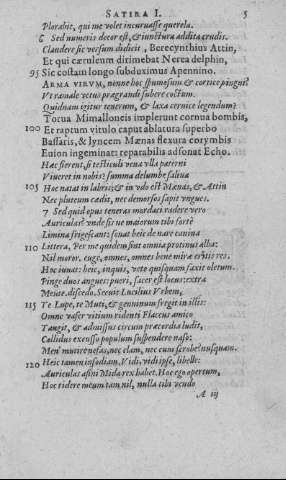 SATIRA I. 5
Plorabit, qui me volet incuruasse querela.
6 Sed numeris decor est, & iunctura addita crudis.
Claudere sic versum didicit, Berecynthius Attin,
Et qui cæruleum dirimebat Nerea delphin,
95 Sic costam longo subduximus Apennino.
ARMA VIRVM, nonne hoc spumosum & cortice pingui?
Vt ramale vetus prægrandi subere coctum.
Quidnam igitur tenerum, & laxa ceruice legendum?
Torua Mimalloneis implerunt cornua bombis,
100 Et raptum vitulo caput ablatura superbo
Bassaris, & lyncem Mænas flexura corymbis
Euion ingeminat: reparabilis adsonat Echo.
Hæc fierent, si testiculi vena vlla paterni
Viueret in nobis? summa delumbe saliua
105 Hoc natat in labris; & in vdo est Mænas, & Attin
Nec pluteum cædit, nec demorsos sapit vngues.
7 Sed quid opus teneras mordaci radere vero
Auriculas? vnde sis ne maiorum tibi forte
Limina frigescant: sonat heic de nare canina
110 Littera, Per me quidem sint omnia protinus alba:
Nil moror. euge, omnes, omnes bene miræ eritis res.
Hoc iuuat: heic, inquis, veto quisquam faxit oletum.
Pinge duos angues: pueri, sacer est locus: extra
Meiite. discedo. Secuit Lucilius Vrbem,
115 Te Lupe, te Muti, & genuinum fregit in illis:
Omne vafer vitium ridenti Flaccus amico
Tangit, & admissus circum præcordia ludit,
Callidus excusso populum suspendere naso:
Men' mutire nefas, nec clam, nec cum scrobe? nusquam.
120 Heic tamen infodiam. Vidi, vidi ipse, libelle:
Auriculas asini Mida rex habet. Hoc ego opertum,
Hoc ridere meum tam nil, nulla tibi vendo
A iij